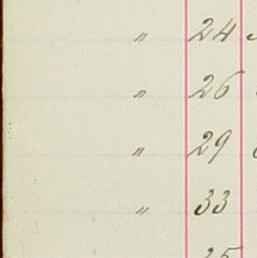 " 24
" 26
" 29
" 33
35